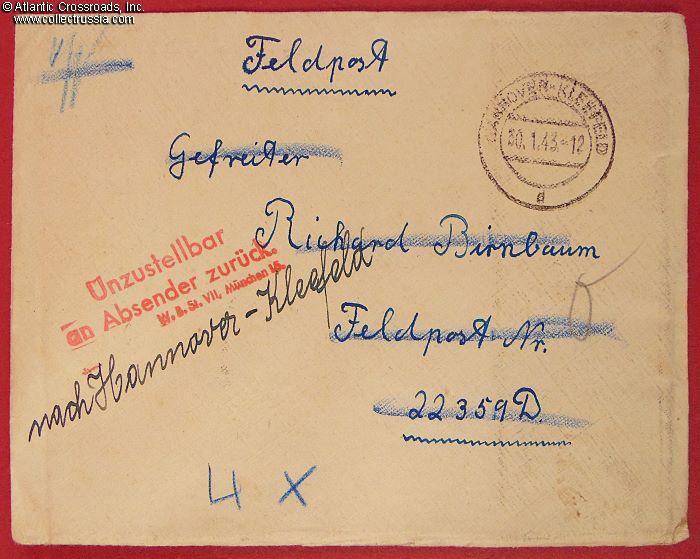 © Atlantic Crossroads, Inc.
www.collectrussia.com
Feldpost
HANNOVER-KLEEFELD
30.1.43.-12
a
Gefreiter
Richard Birnbaum
Unzustellbar
an Absender zurück.
W. B. St. VII, München
nach Hannover-Kleefeld
Feldpost Nr.
22359D.
4 x